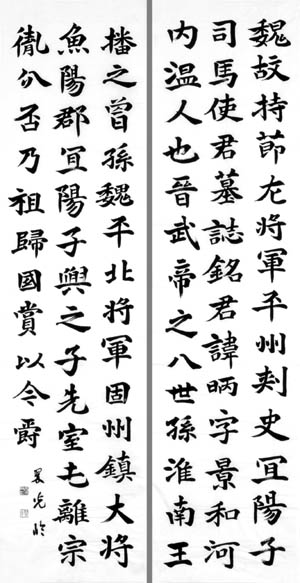 魏故持節左將軍平州刺史冝陽子
司馬使君墓誌銘君諱昞字景和河
内温人也晉武帝之八世孫淮南王
播之曾孫魏平北將軍固州鎮大將
魚陽郡冝陽子興之子先室士離宗
胤分否乃祖歸國賞以今爵